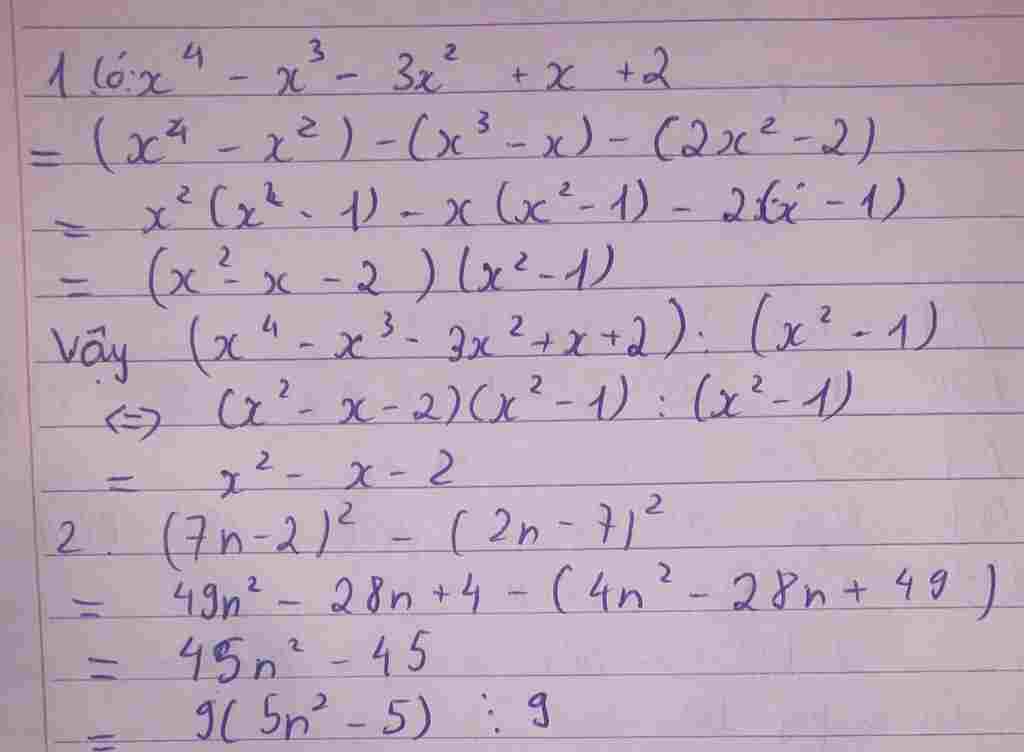 1 Có: x⁴ - x³ - 3x² + x + 2
= (x⁴ - x²) - (x³ - x) - (2x² - 2)
= x²(x² - 1) - x(x² - 1) - 2(x - 1)
= (x² - x - 2)(x² - 1)
Vậy (x⁴ - x³ - 3x² + x + 2) : (x² - 1)
<=> (x² - x - 2)(x² - 1) : (x² - 1)
= x² - x - 2
2. (7n - 2)² - (2n - 7)²
= 49n² - 28n + 4 - (4n² - 28n + 49)
= 45n² - 45
= 9(5n² - 5) ⋮ 9